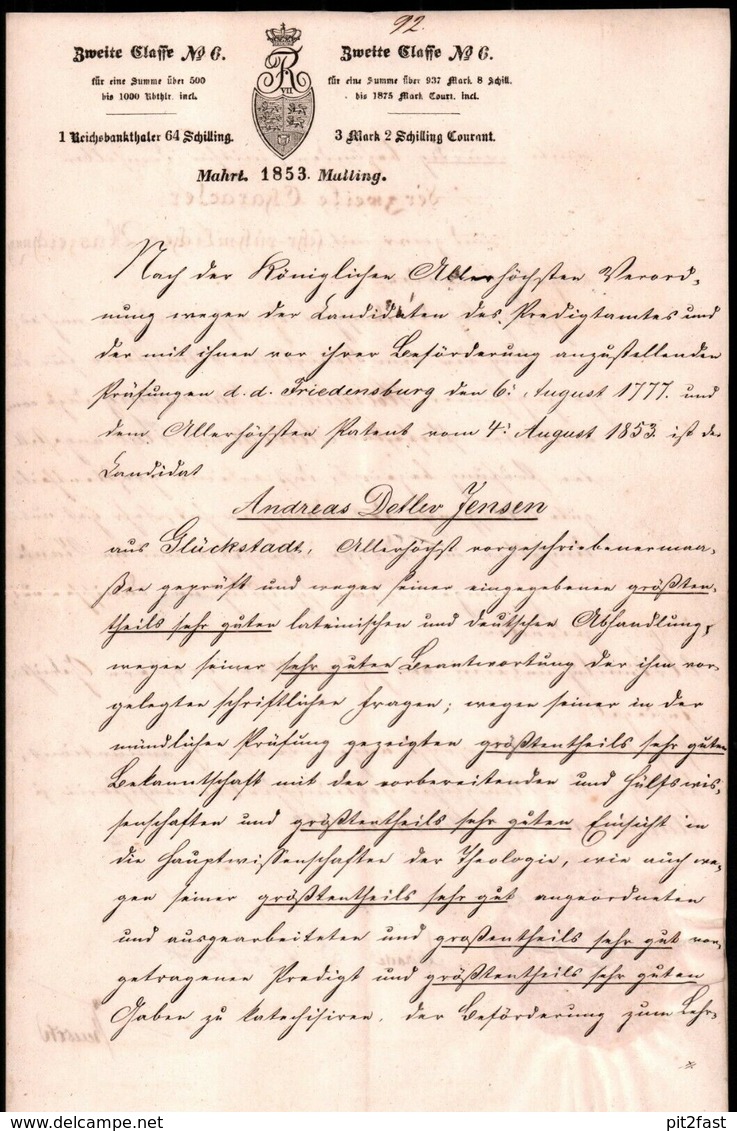 92.
Zweite Classe № 6.
Zweite Classe № 6.
für eine Summe über 500
bis 1000 Rbthlr. incl.
für eine Summe über 937 Mark 8 Schill.
bis 1875 Mark Cour. incl.
1 Reichsbankthaler 64 Schilling.
3 Mark 2 Schilling Courant.
VII
Mahrt. 1853. Malling.
der zweite Character
Nach der Königlichen Allerhöchsten Verord-
nung wegen der Candidaten des Predigtamtes und
der mit ihnen vor ihrer Beförderung anzustellenden
Prüfungen d. d. Friedensburg den 6. August 1777. und
dem Allerhöchsten Patent vom 4. August 1853 ist der
Candidat
Andreas Detlev Jensen
aus Glückstadt, Allerhöchst vorgeschriebenermaa-
ßen geprüft und wegen seiner eingegebenen größten-
theils sehr guten lateinischen und deutschen Abhandlung,
wegen seiner sehr guten Beantwortung der ihm vor-
gelegten schriftlichen Fragen; wegen seiner in der
mündlichen Prüfung gezeigten größtentheils sehr guten
Bekanntschaft mit den vorbereitenden und Hülfswis-
senschaften und größtentheils sehr guten Einsicht in
die Hauptwissenschaften der Theologie, wie auch we-
gen seiner größtentheils sehr gut angeordneten
und ausgearbeiteten und großentheils sehr gut vor-
getragenen Predigt und größtentheils sehr guten
Gaben zu katechisiren, der Beförderung zum Lehr-
pit2fast